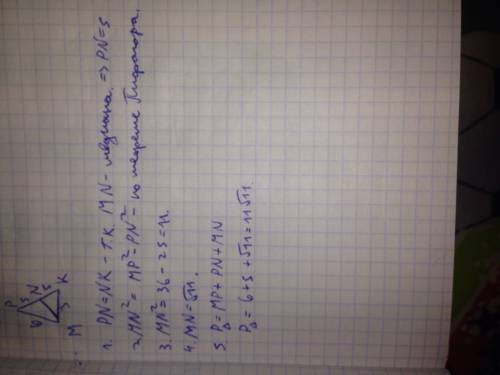 P
6
5
N
5
M
K
1. PN=NK - т.к. MN - медиана. => PN=5
2. MN² = MP² - PN² - по теореме Пифагора.
3. MN² = 36 - 25 = 11.
4. MN = √11.
5. P△ = MP + PN + MN
P△ = 6 + 5 + √11 = 11√11.